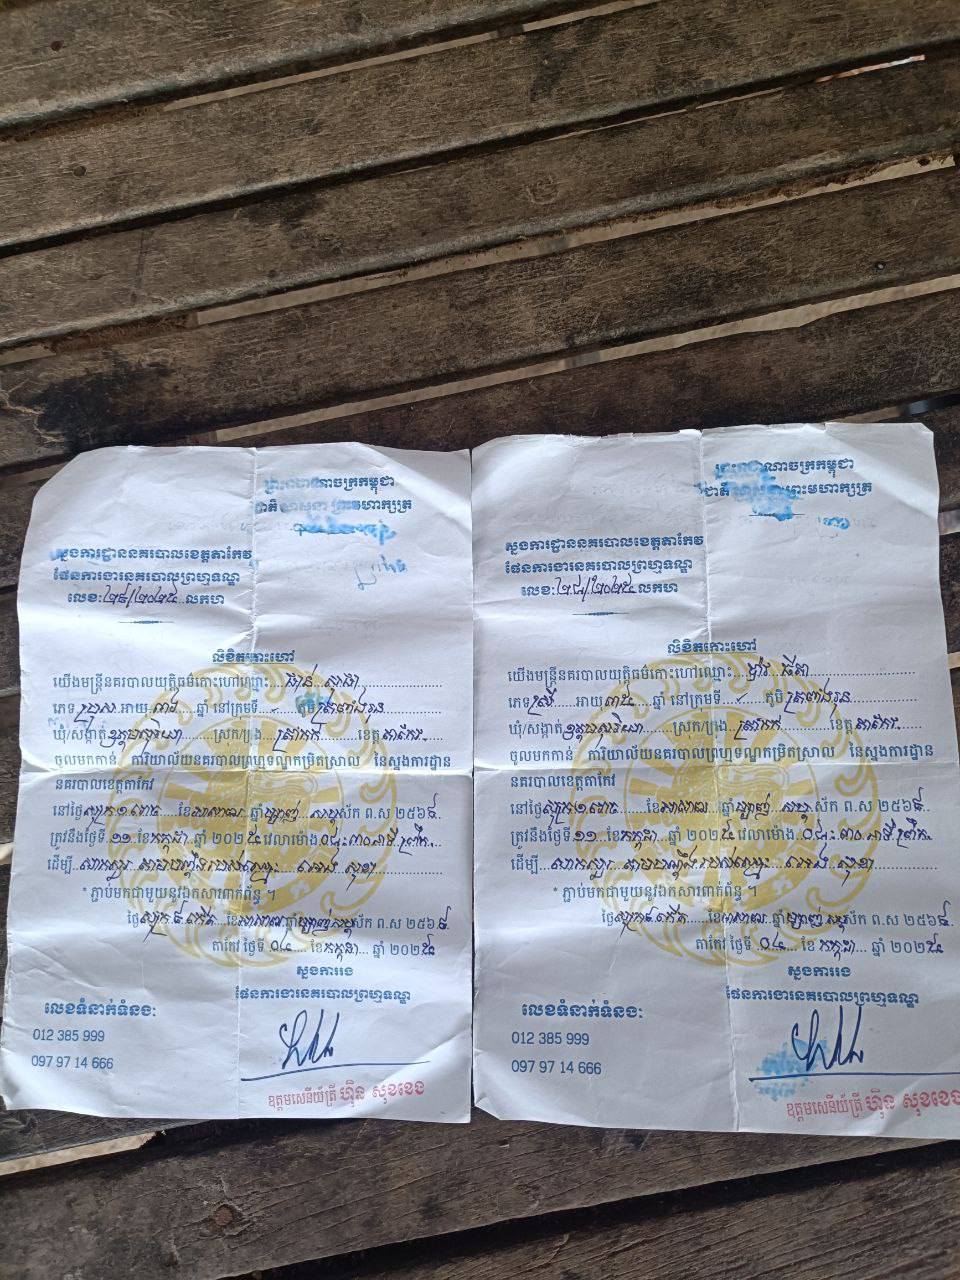 ព្រះរាជាណាចក្រកម្ពុជា
ជាតិ សាសនា ព្រះមហាក្សត្រ
ស្នងការដ្ឋាននគរបាលខេត្តតាកែវ
ផែនការងារនគរបាលព្រហ្មទណ្ឌ
លេខ: ២៩/២០២៥ លកហ
លិខិតកោះហៅ
យើងមន្ត្រីនគរបាលយុត្តិធម៌កោះហៅឈ្មោះ
ភេទ ប្រុស អាយុ ឆ្នាំ នៅក្រុមទី ភូមិ
ឃុំ/សង្កាត់ ស្រុក/ក្រុង ខេត្ត តាកែវ
ចូលមកកាន់ ការិយាល័យនគរបាលព្រហ្មទណ្ឌកម្រិតស្រាល នៃស្នងការដ្ឋាន
នគរបាលខេត្តតាកែវ
នៅថ្ងៃ សុក្រ ១ រោច ខែ អាសាឍ ឆ្នាំ ម្សាញ់ សប្តស័ក ព.ស ២៥៦៩
ត្រូវនឹងថ្ងៃទី ១១ ខែ កក្កដា ឆ្នាំ ២០២៥ វេលាម៉ោង ០៨:៣០នាទី ព្រឹក
ដើម្បី សាកសួរ តាមបណ្តឹងរបស់ឈ្មោះ សុខា
* ភ្ជាប់មកជាមួយនូវឯកសារពាក់ព័ន្ធ ។
ថ្ងៃ សុក្រ ៩ កើត ខែ អាសាឍ ឆ្នាំ ម្សាញ់ សប្តស័ក ព.ស ២៥៦៩
តាកែវ ថ្ងៃទី ០៤ ខែ កក្កដា ឆ្នាំ ២០២៥
ស្នងការរង
ផែនការងារនគរបាលព្រហ្មទណ្ឌ
លេខទំនាក់ទំនង:
012 385 999
097 97 14 666
ឧត្តមសេនីយ៍ត្រី ហ៊ិន សុខខេង
ព្រះរាជាណាចក្រកម្ពុជា
ជាតិ សាសនា ព្រះមហាក្សត្រ
ស្នងការដ្ឋាននគរបាលខេត្តតាកែវ
ផែនការងារនគរបាលព្រហ្មទណ្ឌ
លេខ: ២៨/២០២៥ លកហ
លិខិតកោះហៅ
យើងមន្ត្រីនគរបាលយុត្តិធម៌កោះហៅឈ្មោះ ធីតា
ភេទ ស្រី អាយុ ៣៥ ឆ្នាំ នៅក្រុមទី ភូមិ
ឃុំ/សង្កាត់ ស្រុក/ក្រុង ខេត្ត តាកែវ
ចូលមកកាន់ ការិយាល័យនគរបាលព្រហ្មទណ្ឌកម្រិតស្រាល នៃស្នងការដ្ឋាន
នគរបាលខេត្តតាកែវ
នៅថ្ងៃ សុក្រ ១ រោច ខែ អាសាឍ ឆ្នាំ ម្សាញ់ សប្តស័ក ព.ស ២៥៦៩
ត្រូវនឹងថ្ងៃទី ១១ ខែ កក្កដា ឆ្នាំ ២០២៥ វេលាម៉ោង ០៨:៣០នាទី ព្រឹក
ដើម្បី សាកសួរ តាមបណ្តឹងរបស់ឈ្មោះ សុខា
* ភ្ជាប់មកជាមួយនូវឯកសារពាក់ព័ន្ធ ។
ថ្ងៃ សុក្រ ៩ កើត ខែ អាសាឍ ឆ្នាំ ម្សាញ់ សប្តស័ក ព.ស ២៥៦៩
តាកែវ ថ្ងៃទី ០៤ ខែ កក្កដា ឆ្នាំ ២០២៥
ស្នងការរង
ផែនការងារនគរបាលព្រហ្មទណ្ឌ
លេខទំនាក់ទំនង:
012 385 999
097 97 14 666
ឧត្តមសេនីយ៍ត្រី ហ៊ិន សុខខេង